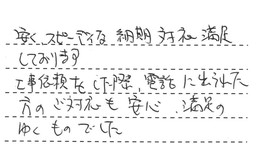 安く、スピーディな 納期 対応 満足
しております
工事依頼をした際、電話に出られた
方のご対応も安心、満足の
ゆくものでした